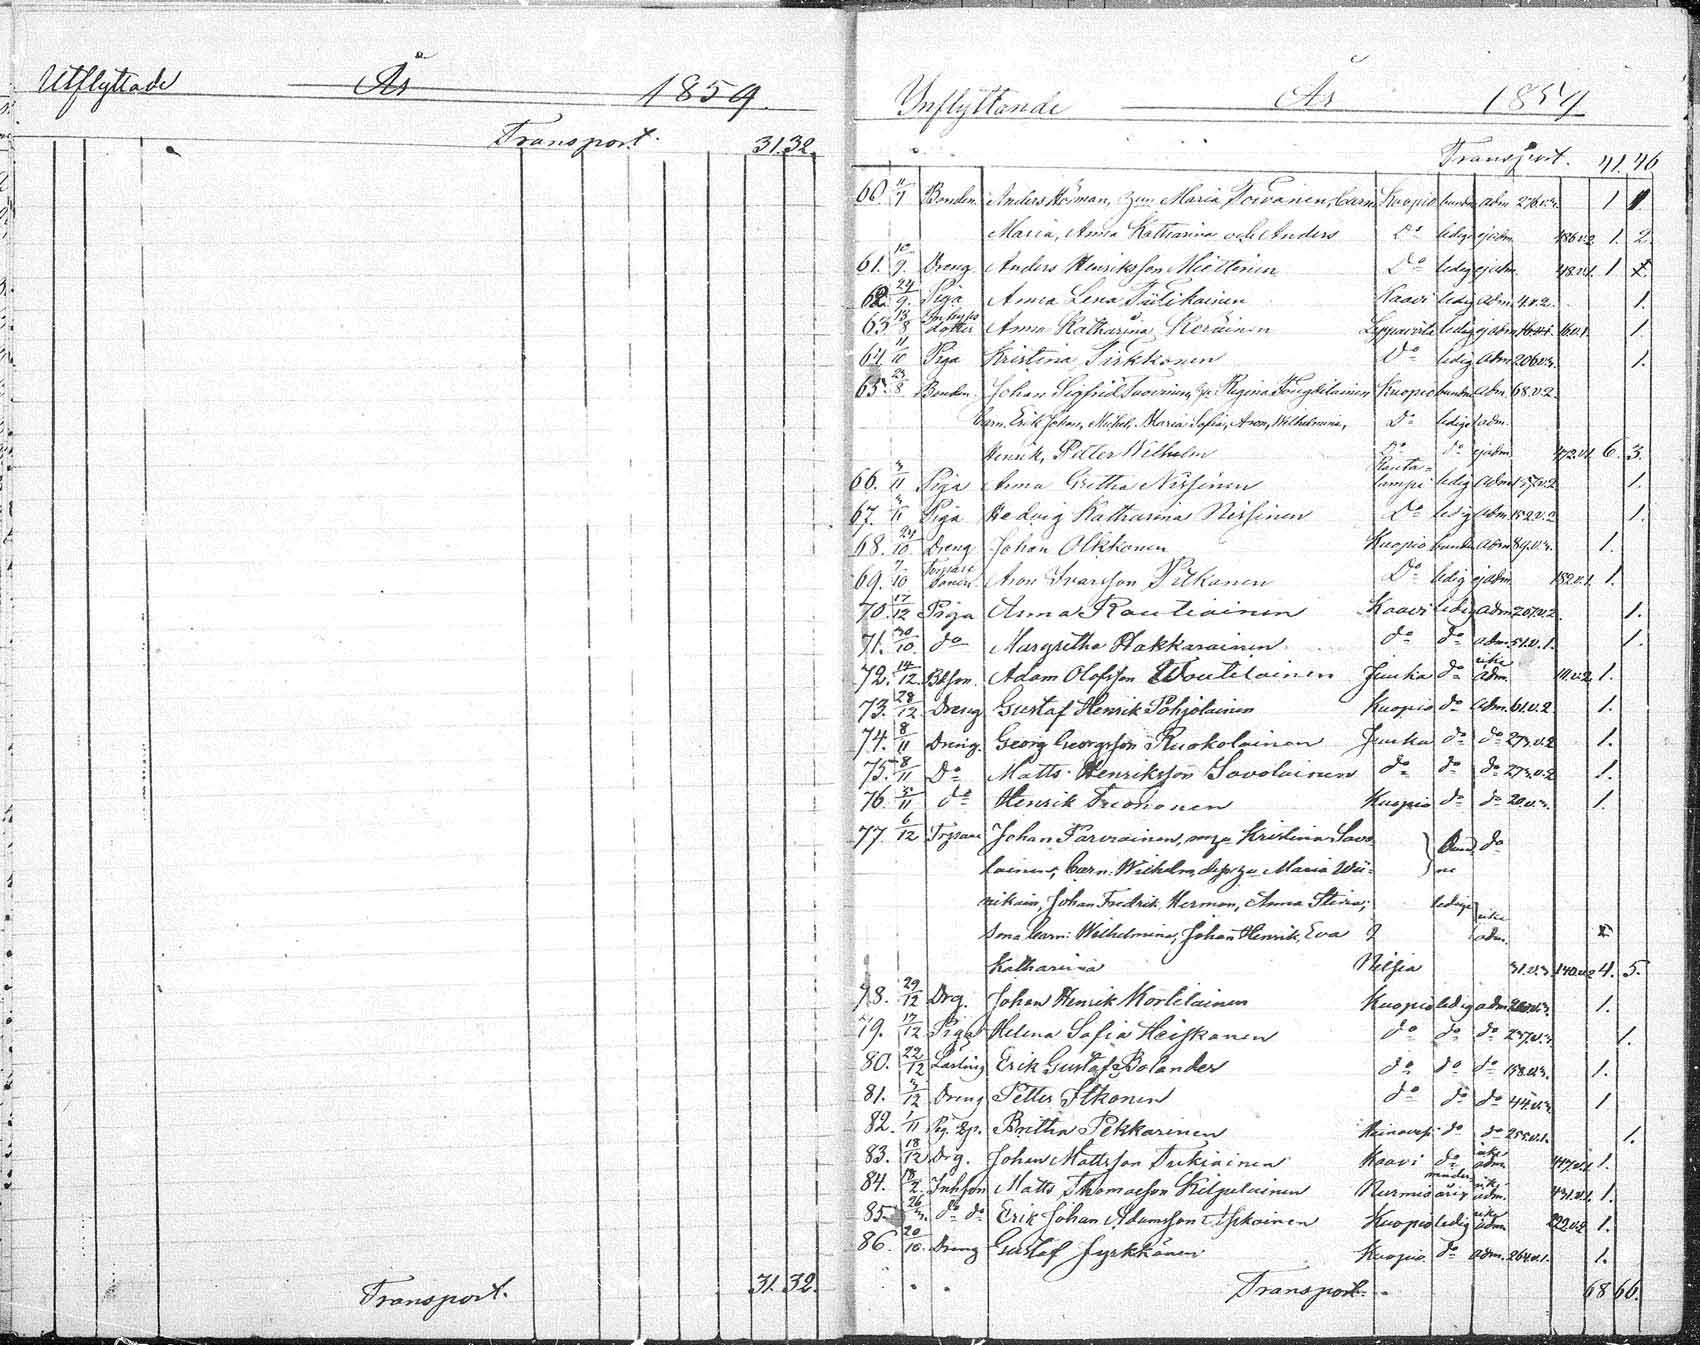 Utflyttade År 1859.
Transport. 31. 32.
Transport. 31. 32.
Inflyttande År 1859
Transport. 41. 46
60. 11/9 Bonden Anders Höiman, Maria Toivanen, barn Kuopio adm. 276.v.3. 1 1.
Maria, Anna Katharina och Anders Do ledige ej adm. 486.v.2 1. 2.
61. 10/9. Dreng Anders Henriksson Miettinen Do ledig ej adm. 48.v.1. 1
62. 24/9. Piga Anna Lena Tiilikainen Kaavi ledig adm. 4.v.2. 1.
63. 13/8 Inhyses dotter Anna Katharina Keräinen Leppävirta ledig ej adm. 16.v.1. 1.
64. 11/11 Piga Kristina Pirkkonen Do ledig adm. 206.v.3. 1.
65. 23/8 Bonden Johan Sigfrid Regina Kuopio adm. 68.v.2.
barn Erik Johan, Michel, Maria Sofia, Aron, Wilhelmina, Do ledige adm.
Henrik, Petter Wilhelm Do do ej adm. 472.v.1. 6. 3.
66. 3/11 Piga Anna Gretha Nissinen Rautalampi ledig adm. 157.v.2 1.
67. 3/11 Piga Hedvig Katharina Nissinen Do ledig adm. 152.v.2 1.
68. 24/10 Dreng Johan Olkkonen Kuopio adm. 89.v.3. 1.
69. 7/10 Aron Ivarsson Pitkänen Do ledig ej adm. 182.v.1. 1.
70. 17/12 Piga Anna Rautiainen Kaavi ledig adm. 207.v.2. 1.
71. 30/10. do Margretha Hakkarainen do do adm. 51.v.1. 1.
72. 14/12 Bdeson. Adam Olofsson Woutilainen Juuka do icke adm. 111.v.2 1.
73. 28/12 Dreng Gustaf Henrik Pohjolainen Kuopio do adm. 61.v.2 1.
74. 8/11 Dreng. Georg Georgsson Ruokolainen Juuka do do 273.v.2 1.
75. 8/11 Do Matts Henriksson Savolainen do do do 273.v.2 1.
76. 3/11 do Henrik Kuopio do do 20.v.3. 1.
77. 6/12 Johan Parviainen, Kristina Savo-
lainen, barn: Wilhelm, Maria
Johan Fredrik, Herman, Anna Stina; ledige
barn: Wilhelmina, Johan Henrik, Eva icke adm.
Katharina Nilsia 31.v.3. 170.v.2 4. 5.
78. 29/12 Drg. Johan Henrik Kortelainen Kuopio ledig adm. 1.
79. 17/12 Piga Helena Sofia Heiskanen do do do 237.v.3. 1.
80. 22/12 Lärling Erik Gustaf Bolander do do do 158.v.3. 1.
81. 3/12 Dreng Petter Itkonen do do do 44.v.3. 1
82. 1/11 Britha Pekkarinen Heinävesi do do 255.v.1. 1.
83. 18/12 Drg. Johan Mattsson Tukiainen Kaavi do icke adm. 447.v.1 1.
84. 18/2. Inhson Matts Thomasson Kilpelainen Nurmis minder årig icke adm. 431.v.1. 1.
85. 26/3. do do Erik Johan Adamsson Kuopio ledig icke adm. 222.v.2 1.
86. 20/10. Dreng Gustaf Jyrkkänen Kuopio do adm. 264.v.1. 1.
Transport. 68 66.